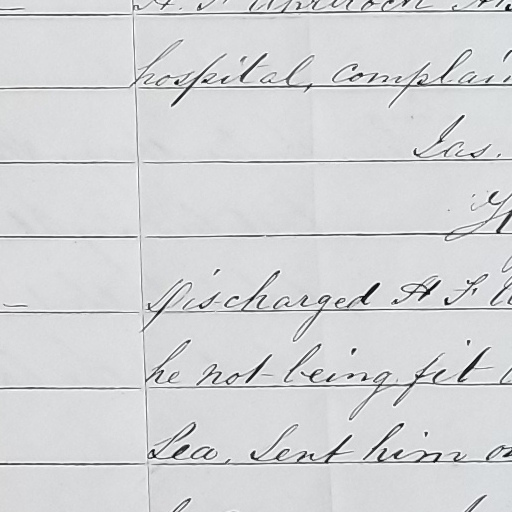 hospital, complai
Jas.
Discharged A F
he not being fit
Sea, Sent him on